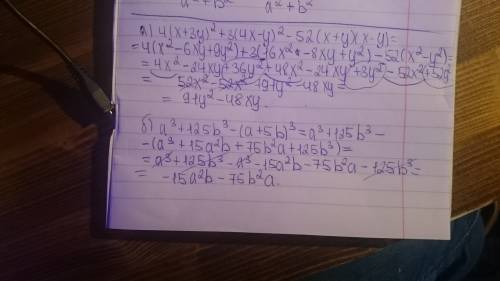 a² + b² a² + b²
а) 4(x+3y)²+3(4x-y)²-52(x+y)(x-y)=
=4(x²-6xy+9y²)+3(16x²-8xy+y²)-52(x²-y²)=
=4x²-24xy+36y²+48x²-24xy+3y²-52x²+52y²
= 52x²-52x²-91y²-48xy=
= 91y²-48xy.
б) a³+125b³-(a+5b)³=a³+125b³-
-(a³+15a²b+75b²a+125b³)=
=a³+125b³-a³-15a²b-75b²a-125b³=
= -15a²b-75b²a.